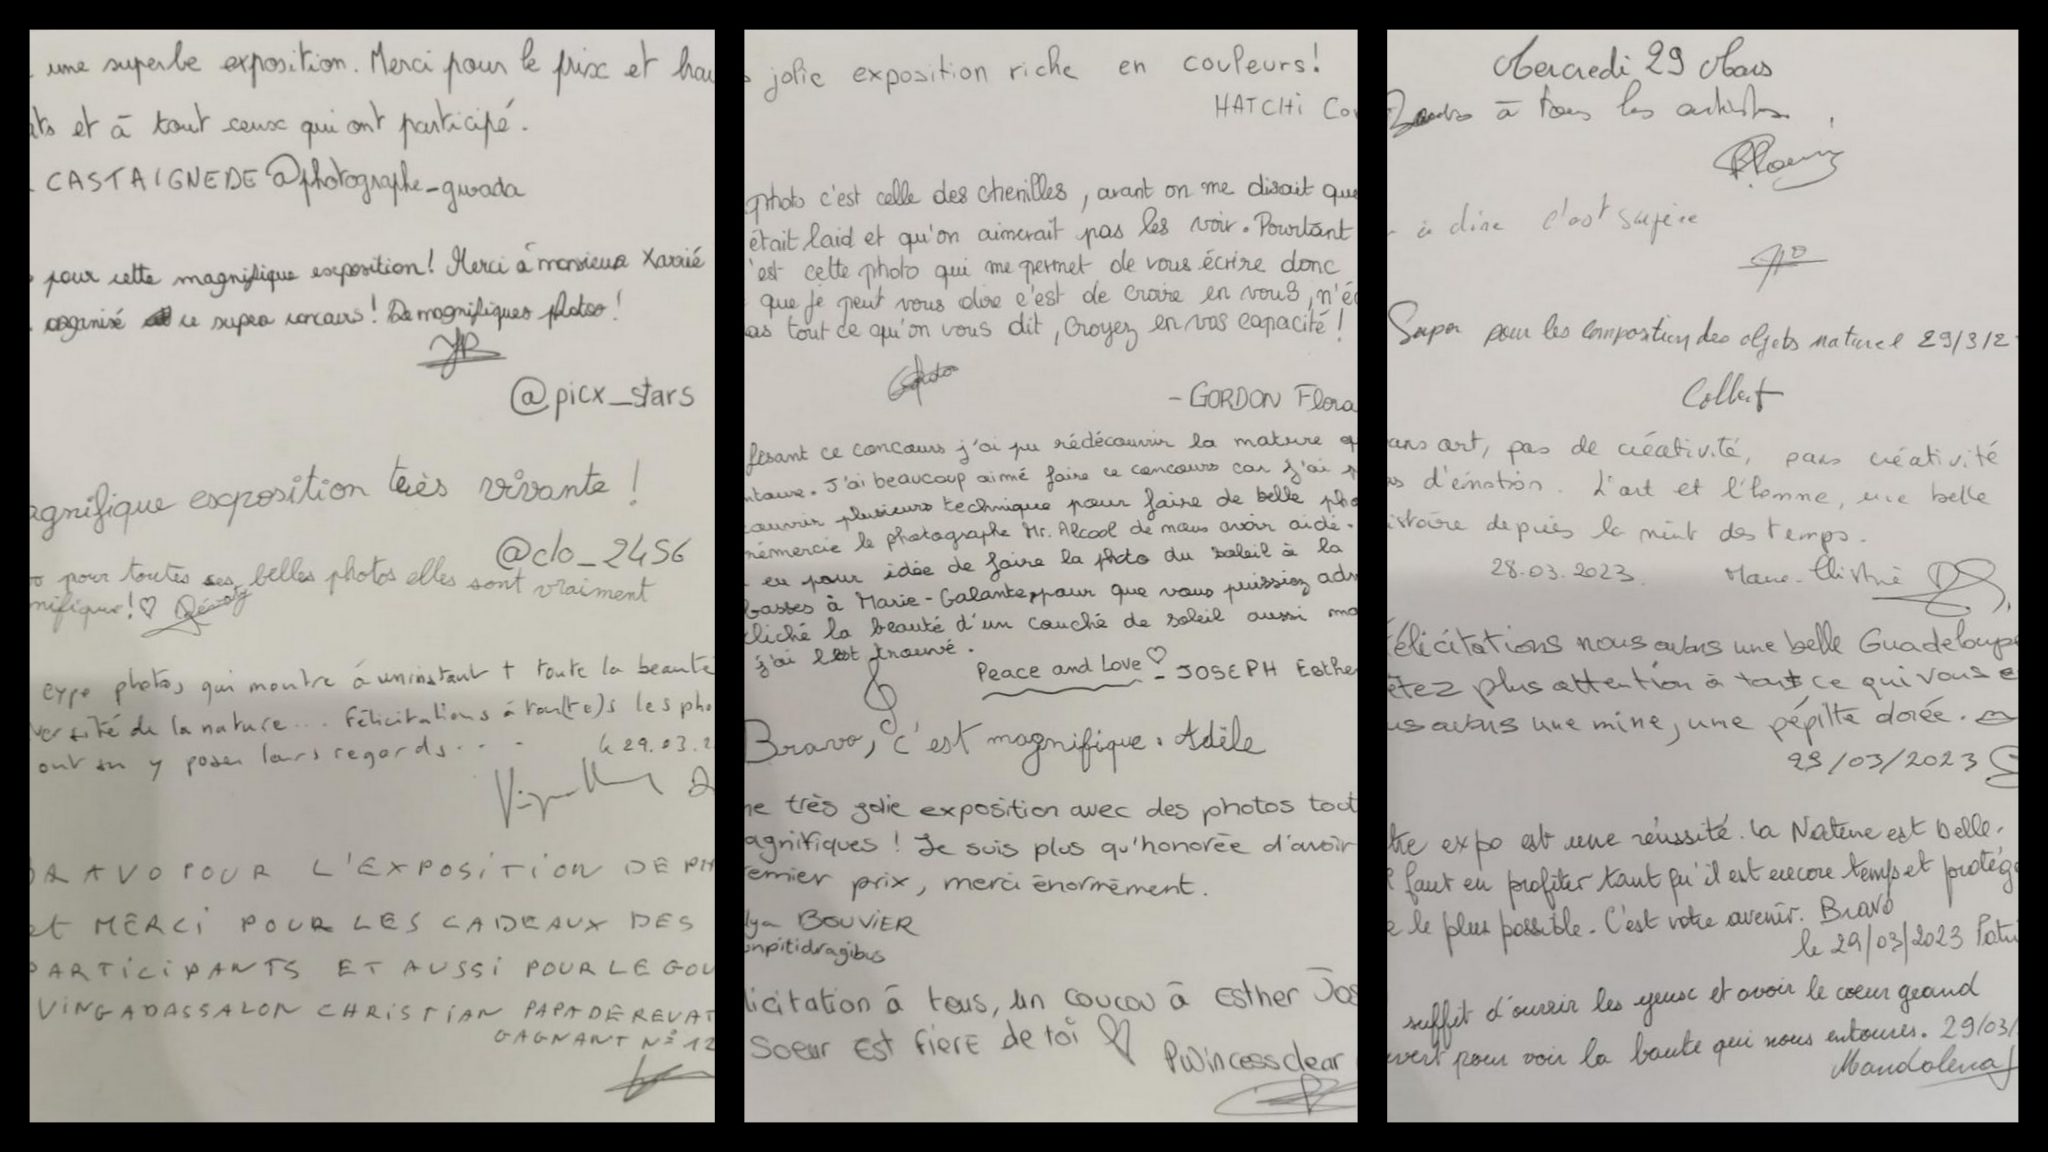 une superbe exposition. Merci pour le prix et
ats et à tout ceux qui ont participé.
CASTAIGNEDE @photographe_gwada
pour cette magnifique exposition! Merci à monsieur Xavié
organisé ce super concours! De magnifiques photos!
@picx_stars
agnifique exposition très vivante!
@clo_2456
o pour toutes ses belles photos elles sont vraiment
nifique! ♡
expo photos, qui montre à un instant + toute la beauté
versité de la nature.... Félicitations à tou(te)s les pho
ont su y poser leurs regards...
le 29.03.2
BRAVO POUR L'EXPOSITION DE PH
et MERCI POUR LES CADEAUX DES
PARTICIPANTS ET AUSSI POUR LE GOU
VINGADASSALON CHRISTIAN PAPA DE REVAT
GAGNANT N° 12
jolie exposition riche en couleurs!
HATCHI Co
photo c'est celle des chenilles, avant on me disait que
était laid et qu'on aimerait pas les voir. Pourtant
'est cette photo qui me permet de vous écrire donc
que je peut vous dire c'est de croire en vous, n'éc
as tout ce qu'on vous dit, croyez en vos capacité!
- GORDON Flora
fesant ce concours j'ai pu rédécouvrir la nature
ntaure. J'ai beaucoup aimé faire ce concours car j'ai
couvrir plusieurs technique pour faire de belle pho
rémercie le photographe Mr. Alcool de nous avoir aidé.
eu pour idée de faire la photo du soleil à la
basses à Marie-Galante, pour que vous puissiez adm
cliché la beauté d'un couché de soleil aussi ma
j'ai trouvé.
Peace and Love ♡ - JOSEPH Esther
Bravo, c'est magnifique. Adèle
ne très jolie exposition avec des photos tout
agnifiques! Je suis plus qu'honorée d'avoir
remier prix, merci énormément.
lya BOUVIER
unpitidragibus
licitation à tous, un coucou à Esther Jos
soeur est fière de toi ♡
Pwincessclear
Mercredi 29 Mars
Bravo à tous les artistes.
à dire c'est supère
Super pour les composition des objets naturel 29/3/2
Colbert
ans art, pas de créativité, pas créativité
as d'émotion. L'art et l'homme, une belle
istoire depuis la nuit des temps.
28.03.2023. Marie-Christine
Félicitations nous avons une belle Guadeloupe
êtez plus attention à tout ce qui vous e
us avons une mine, une pépite dorée.
29/03/2023
tre expo est une réussité. La Nature est belle.
l faut en profiter tant qu'il est encore temps et protég
e le plus possible. C'est votre avenir. Bravo
le 29/03/2023 Patri
suffit d'ouvrir les yeux et avoir le coeur grand
uvert pour voir la bauté qui nous entoures. 29/03/
Mandolena